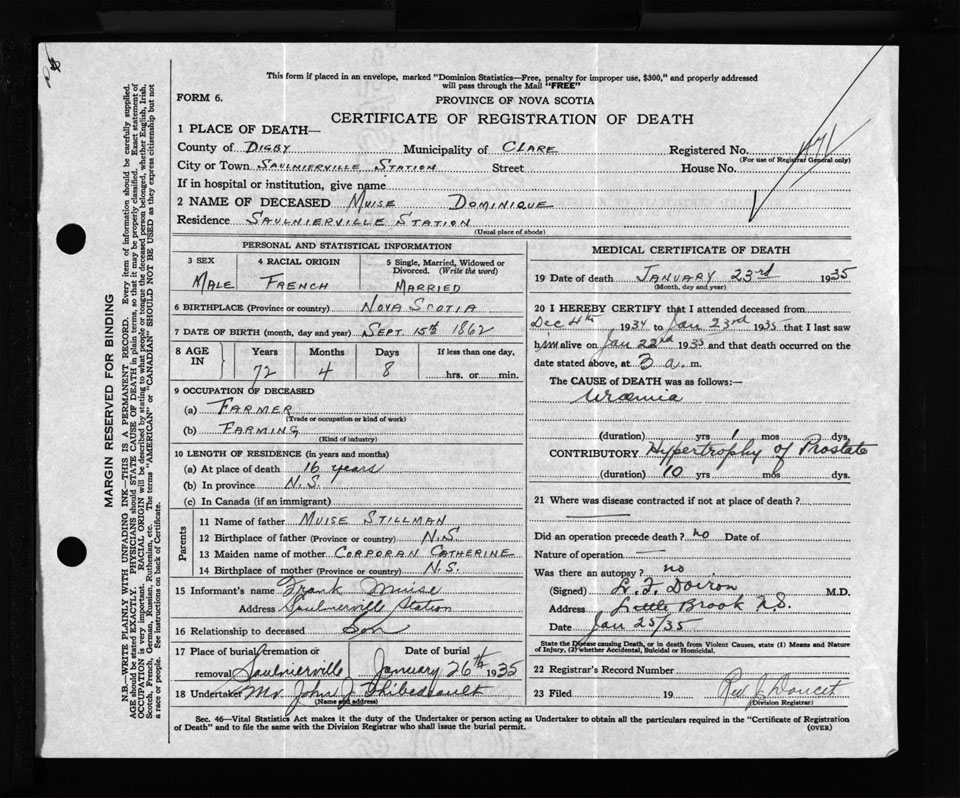 This form if placed in an envelope, marked "Dominion Statistics—Free, penalty for improper use, $300," and properly addressed
will pass through the Mail "FREE"
FORM 6.
PROVINCE OF NOVA SCOTIA
CERTIFICATE OF REGISTRATION OF DEATH
1 PLACE OF DEATH—
County of DIGBY Municipality of CLARE Registered No. 471
(For use of Registrar General only)
City or Town SAULNIERVILLE STATION Street House No.
If in hospital or institution, give name
2 NAME OF DECEASED MUISE DOMINIQUE
Residence SAULNIERVILLE STATION
(Usual place of abode)
PERSONAL AND STATISTICAL INFORMATION
3 SEX
MALE
4 RACIAL ORIGIN
FRENCH
5 Single, Married, Widowed or
Divorced. (Write the word)
MARRIED
6 BIRTHPLACE (Province or country) NOVA SCOTIA
7 DATE OF BIRTH (month, day and year) SEPT. 15th 1862
8 AGE IN
Years Months Days If less than one day,
72 4 8 hrs. or min.
9 OCCUPATION OF DECEASED
(a) FARMER
(Trade or occupation or kind of work)
(b) FARMING
(Kind of industry)
10 LENGTH OF RESIDENCE (in years and months)
(a) At place of death 16 years
(b) In province N.S.
(c) In Canada (if an immigrant)
Parents
11 Name of father MUISE STILLMAN
12 Birthplace of father (Province or country) N.S.
13 Maiden name of mother CORPORAN CATHERINE
14 Birthplace of mother (Province or country) N.S.
15 Informant's name Frank Muise
Address Saulnierville Station
16 Relationship to deceased Son
17 Place of burial, cremation or
removal Saulnierville
Date of burial
January 26th 1935
18 Undertaker Mr John J Thibeault
(Name and address)
MEDICAL CERTIFICATE OF DEATH
19 Date of death JANUARY 23rd 1935
(Month, day and year)
20 I HEREBY CERTIFY that I attended deceased from
Dec 4th 1934 to Jan 23rd 1935 that I last saw
him alive on Jan 22nd 1935 and that death occurred on the
date stated above, at 3 a. m.
The CAUSE of DEATH was as follows:—
Uraemia
(duration) yrs 1 mos dys.
CONTRIBUTORY Hypertrophy of Prostate
(duration) 10 yrs mos dys.
21 Where was disease contracted if not at place of death?
Did an operation precede death? no Date of
Nature of operation —
Was there an autopsy? no
(Signed) L. F. Doiron M.D.
Address Little Brook N.S.
Date Jan 25/35
State the Disease causing Death, or in death from Violent Causes, state (1) Means and Nature
of Injury, (2) whether Accidental, Suicidal or Homicidal.
22 Registrar's Record Number
23 Filed 19 Rev J Doucet
(Division Registrar)
Sec. 46—Vital Statistics Act makes it the duty of the Undertaker or person acting as Undertaker to obtain all the particulars required in the "Certificate of Registration
of Death" and to file the same with the Division Registrar who shall issue the burial permit. (OVER)
MARGIN RESERVED FOR BINDING
N.B.—WRITE PLAINLY WITH UNFADING INK—THIS IS A PERMANENT RECORD. Every item of information should be carefully supplied.
AGE should be stated EXACTLY. PHYSICIANS should STATE CAUSE OF DEATH in plain terms, so that it may be properly classified. Exact statement of
OCCUPATION is very important. RACIAL ORIGIN will be described by stating to what people or tongue the deceased person belonged, whether English, Irish,
Scotch, French, German, Russian, Ruthenian, etc. The terms "AMERICAN" or "CANADIAN" SHOULD NOT BE USED as they express citizenship but not
a race or people. See instructions on back of Certificate.